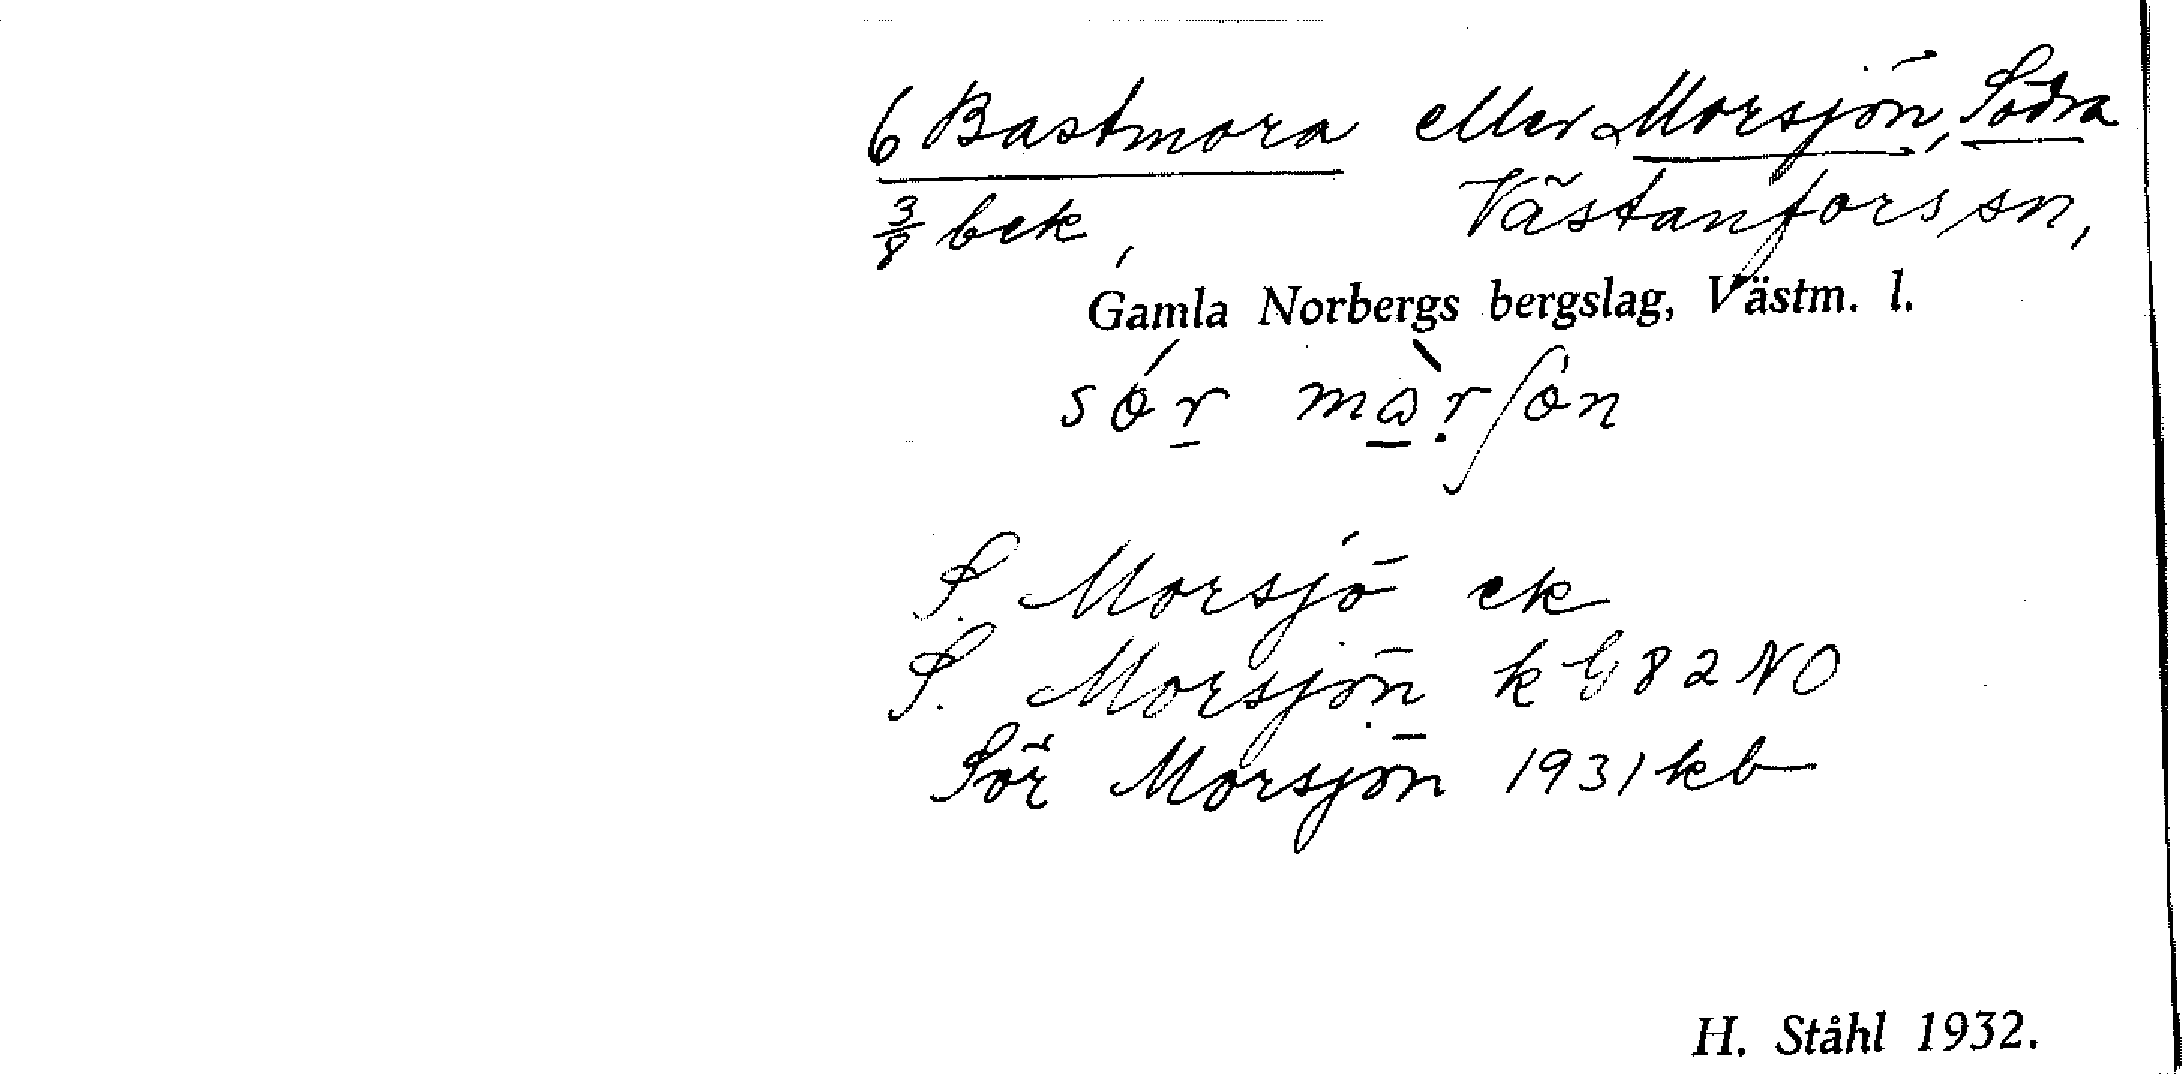 6 Bastmora eller Morsjön, Södra
3/8 bek, Västanfors sn,
Gamla Norbergs bergslag, Västm. l.
S. Morsjö ek
S. Morsjön k G 82 NO
Sör Morsjön 1931 kb
H. Ståhl 1932.